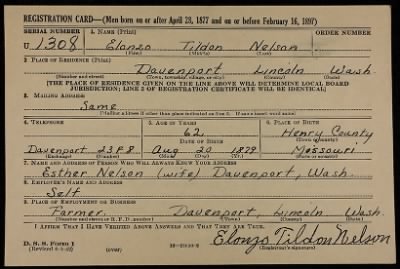 REGISTRATION CARD—(Men born on or after April 28, 1877 and on or before February 16, 1897)
SERIAL NUMBER 1. NAME (Print) ORDER NUMBER
U 1308 Elonzo Tildon Nelson
(First) (Middle) (Last)
2. PLACE OF RESIDENCE (Print)
Davenport Lincoln Wash.
(Number and street) (Town, township, village, or city) (County) (State)
[THE PLACE OF RESIDENCE GIVEN ON THE LINE ABOVE WILL DETERMINE LOCAL BOARD
JURISDICTION; LINE 2 OF REGISTRATION CERTIFICATE WILL BE IDENTICAL]
3. MAILING ADDRESS
Same
[Mailing address if other than place indicated on line 2. If same insert word same]
4. TELEPHONE 5. AGE IN YEARS 6. PLACE OF BIRTH
62 Henry County
DATE OF BIRTH (Town or county)
Davenport 23F8 Aug 20 1879 Missouri
(Exchange) (Number) (Mo.) (Day) (Yr.) (State or country)
7. NAME AND ADDRESS OF PERSON WHO WILL ALWAYS KNOW YOUR ADDRESS
Esther Nelson (wife) Davenport, Wash.
8. EMPLOYER'S NAME AND ADDRESS
Self
9. PLACE OF EMPLOYMENT OR BUSINESS
Farmer. Davenport, Lincoln Wash.
(Number and street or R. F. D. number) (Town) (County) (State)
I AFFIRM THAT I HAVE VERIFIED ABOVE ANSWERS AND THAT THEY ARE TRUE.
D. S. S. Form 1 Elonzo Tildon Nelson
(Revised 4-1-42) (over) (Registrant's signature)